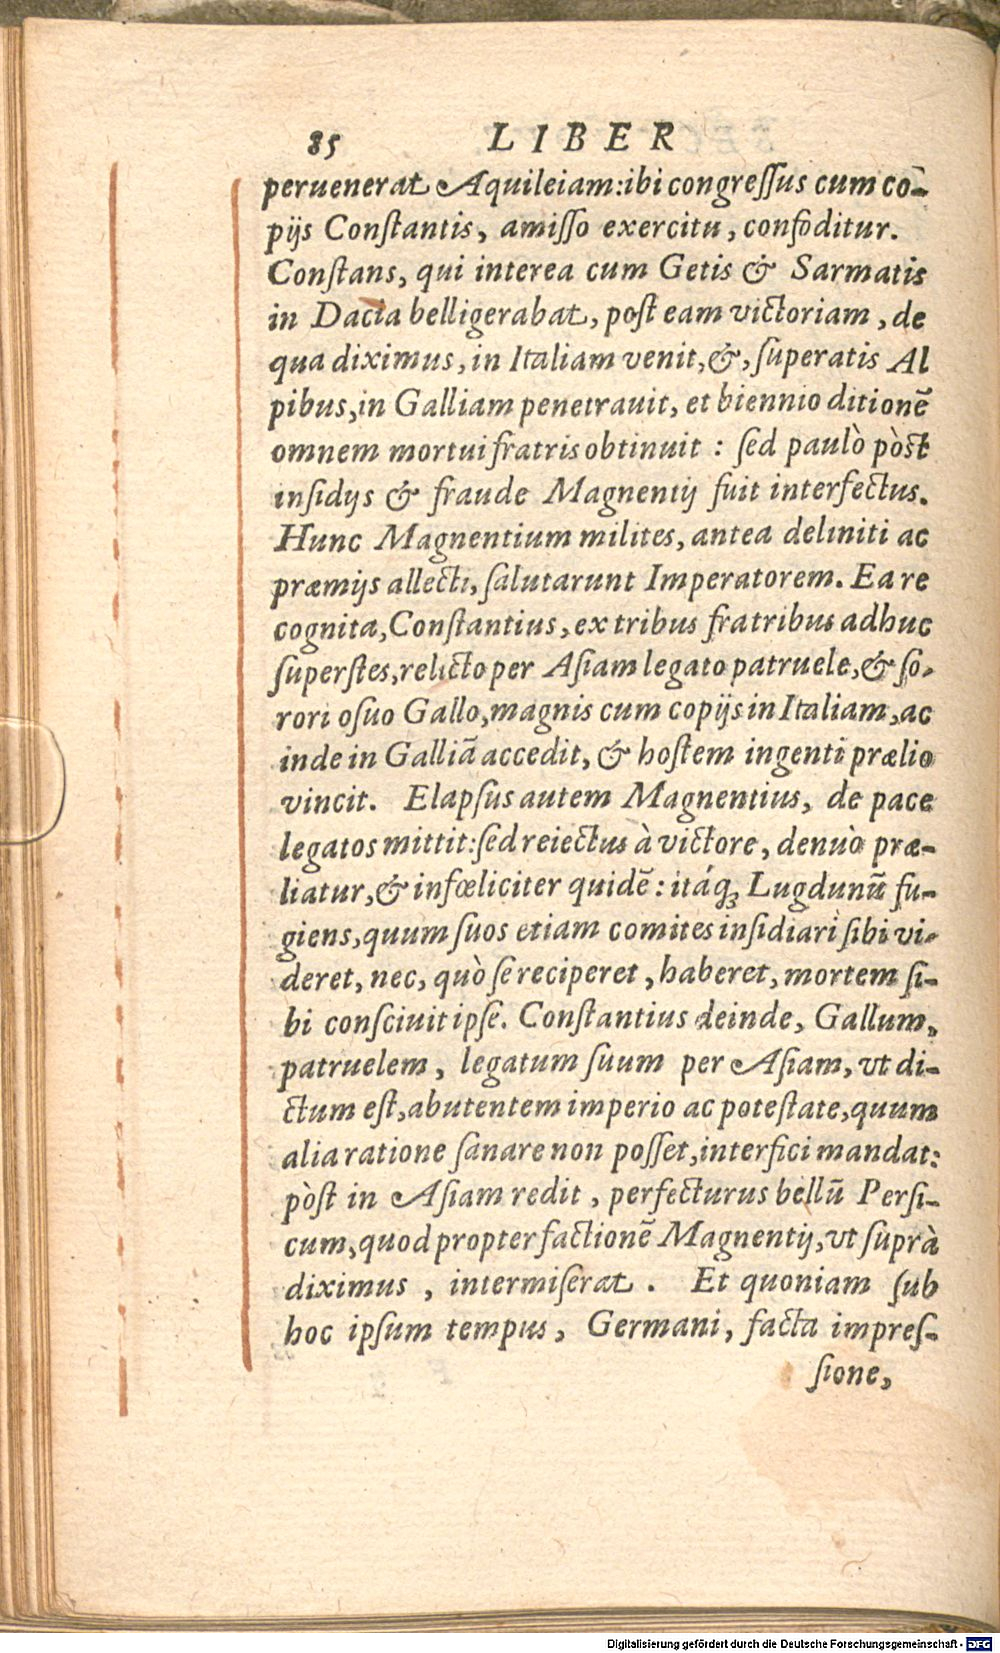 85 LIBER
peruenerat Aquileiam: ibi congreſſus cum co-
pijs Conſtantis, amiſſo exercitu, confoditur.
Conſtans, qui interea cum Getis & Sarmatis
in Dacia belligerabat, poſt eam victoriam, de
qua diximus, in Italiam venit, &, ſuperatis Al
pibus, in Galliam penetrauit, et biennio ditionē
omnem mortui fratris obtinuit: ſed paulò pòſt
inſidijs & fraude Magnentij fuit interfectus.
Hunc Magnentium milites, antea deliniti ac
præmijs allecti, ſalutarunt Imperatorem. Ea re
cognita, Conſtantius, ex tribus fratribus adhuc
ſuperſtes, relicto per Aſiam legato patruele, & ſo-
rori oſuo Gallo, magnis cum copijs in Italiam, ac
inde in Galliā accedit, & hoſtem ingenti prælio
vincit. Elapſus autem Magnentius, de pace
legatos mittit: ſed reiectus à victore, denuò præ-
liatur, & infœliciter quidē: itáq; Lugdunū fu-
giens, quum ſuos etiam comites inſidiari ſibi vi-
deret, nec, quò ſe reciperet, haberet, mortem ſi-
bi conſciuit ipſe. Conſtantius deinde, Gallum,
patruelem, legatum ſuum per Aſiam, vt di-
ctum eſt, abutentem imperio ac poteſtate, quum
alia ratione ſanare non poſſet, interfici mandat:
pòſt in Aſiam redit, perfecturus bellū Perſi-
cum, quod propter factionē Magnentij, vt ſuprà
diximus, intermiſerat. Et quoniam ſub
hoc ipſum tempus, Germani, facta impreſ-
ſione,
Digitalisierung gefördert durch die Deutsche Forschungsgemeinschaft - DFG